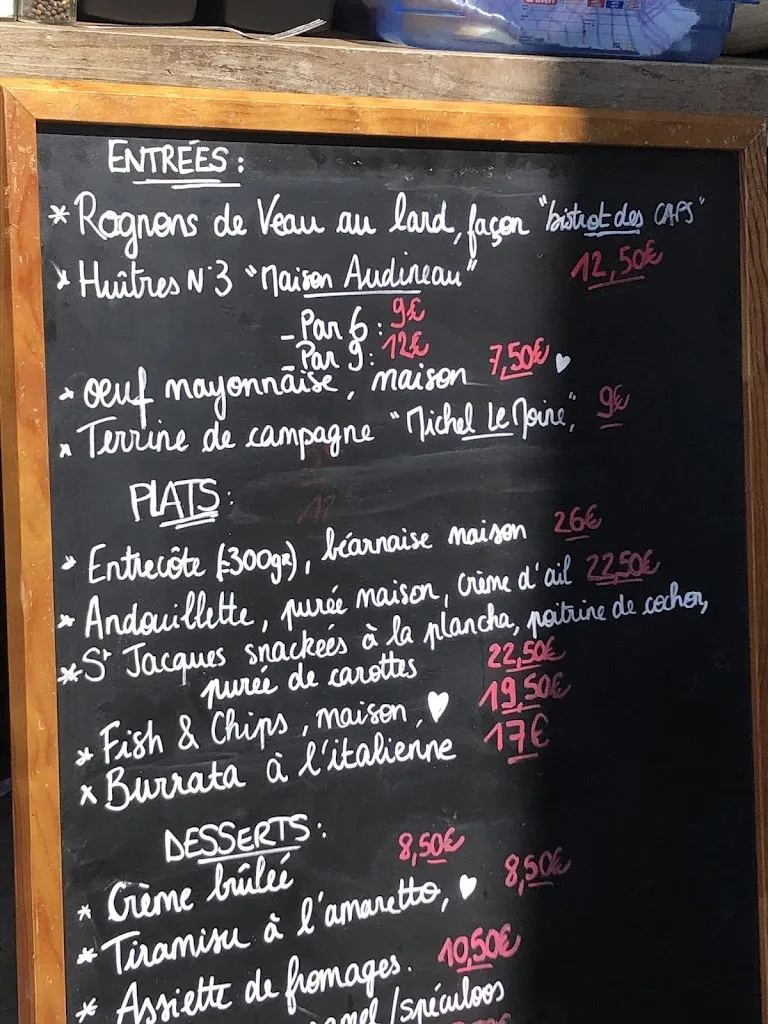 ENTRÉES :
* Rognons de Veau au lard, façon "bistrot des CAPS"
12,50€
* Huîtres N°3 "Maison Audineau"
- Par 6 : 9€
Par 9 : 12€
* oeuf mayonnaise, maison 7,50€ ♥
* Terrine de campagne "Michel Le Moine", 9€
PLATS :
* Entrecôte (±300gr), béarnaise maison 26€
* Andouillette, purée maison, crème d'ail 22,50€
* St Jacques snackées à la plancha, poitrine de cochon,
purée de carottes 22,50€
* Fish & Chips, maison, ♥ 19,50€
* Burrata à l'italienne 17€
DESSERTS :
* Crème brûlée 8,50€
* Tiramisu à l'amaretto, ♥ 8,50€
* Assiette de fromages. 10,50€
/spéculoos